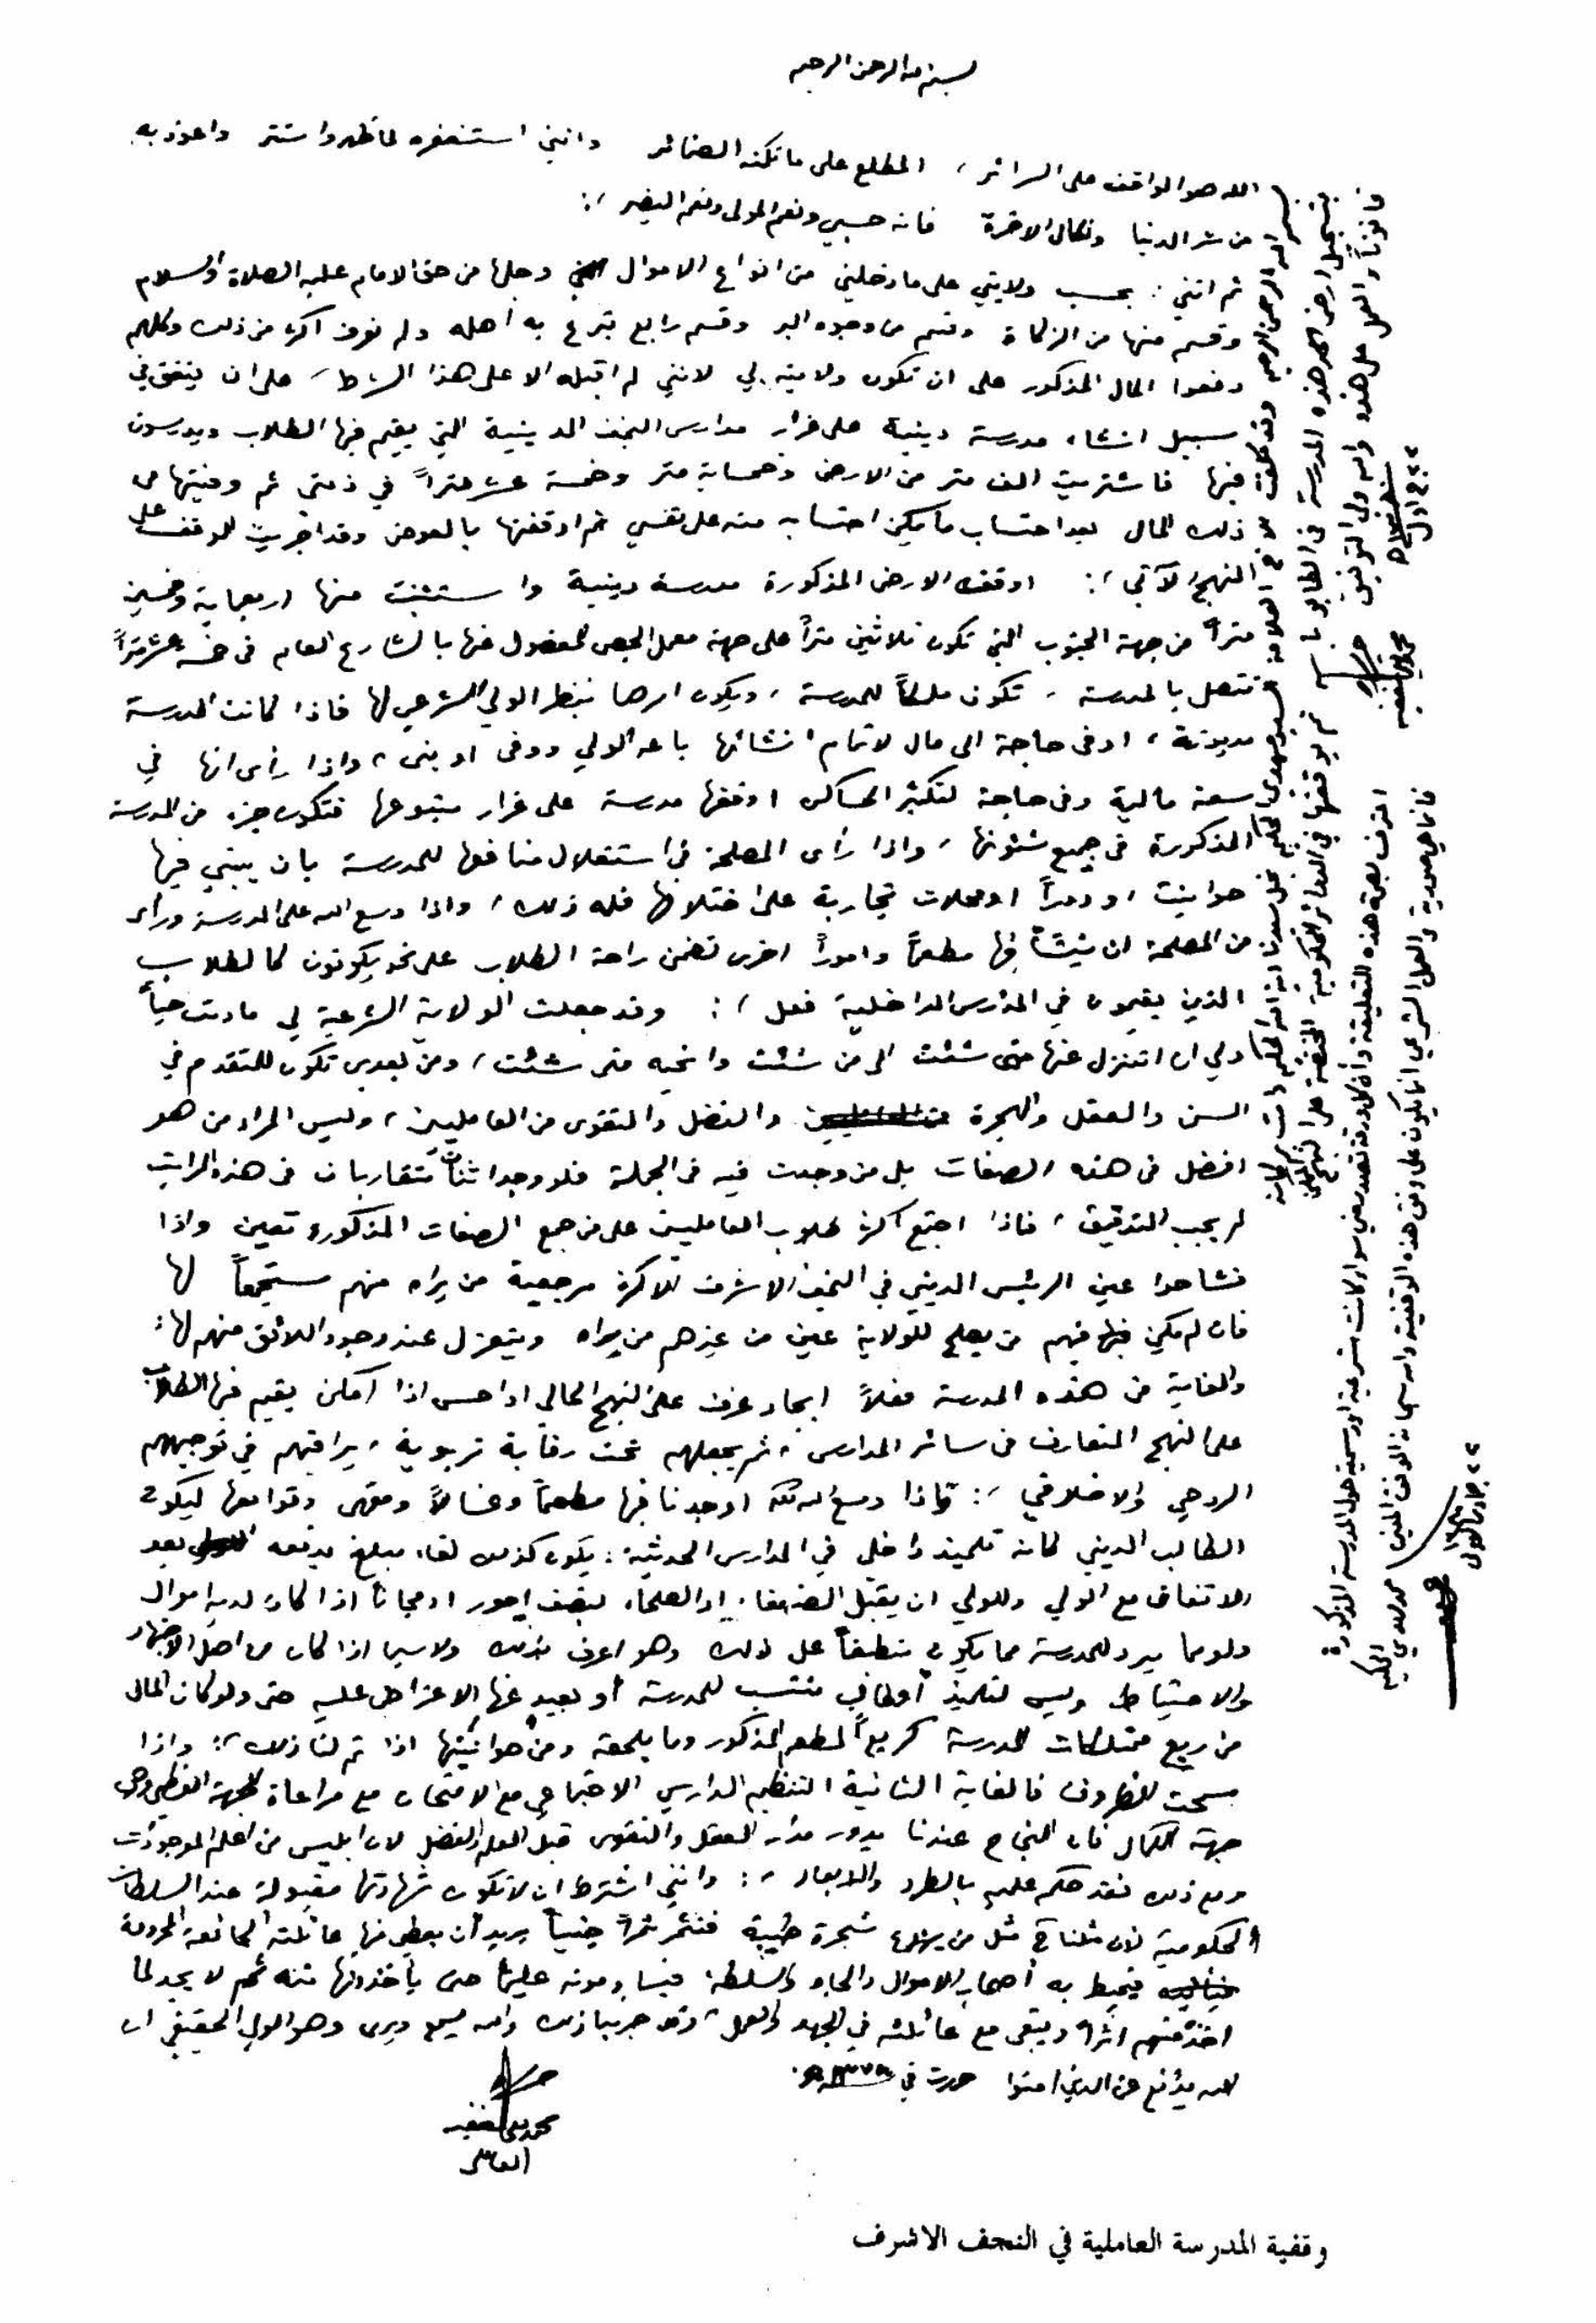 بسم الله الرحمن الرحيم
الله هو الواقف على السرائر، المطلع على ما تكنه الضمائر وانني استغفره لما ظهر واستتر واعوذ به
من شر الدنيا ونكال الاخرة فانه حسبي ونعم المولى ونعم النصير :.
ثم انني : بحسب ولايتي على ما دخلني من انواع الاموال وجلها من حق الامام عليه الصلاة والسلام
وقسم منها من الزكاة وقسم من وجوه البر وقسم رابع تبرع به أهله ولم نعرف اكثر من ذلك وكلهم
دفعوا المال المذكور على ان تكون ولايته لي لانني لم اقبله الا على هذا الشرط، على ان ينفق في
سبيل انشاء مدرسة دينية على غرار مدارس النجف الدينية التي يقيم فيها الطلاب ويدرسون
فيها فاشتريت الف متر من الارض وخمسماية متر وخمسة عشر متراً في ذمتي ثم وفيتها من
ذلك المال بعد احتساب ما يمكن احتسابه منه على نفسي ثم اوقفتها بالعوض وقد اجريت الوقف على
النهج الآتي :. اوقفت الارض المذكورة مدرسة دينية واستثنيت منها اربعماية وخمسين
متراً من جهة الجنوب التي تكون ثلاثين متراً على جهة معمل الجص المفصول عنها بالشارع العام في خمسة عشر متراً
تتصل بالمدرسة، تكون ملكاً للمدرسة، ويكون امرها بنظر الولي الشرعي لها فاذا كانت المدرسة
مديونة، او في حاجة الى مال لاتمام انشائها باعه الولي ووفى او بنى، واذا رأى انها في
سعة مالية وفي حاجة لتكثير المساكن اوقفها مدرسة على غرار متبوعها فتكون جزء من المدرسة
المذكورة في جميع شئونها، واذا رأى المصلحة في استغلال منافعها للمدرسة بان يبني فيها
حوانيت او دوراً او محلات تجارية على اختلافها فله ذلك، واذا وسع الله على المدرسة ورأى
من المصلحة ان ينشأ فيها مطعماً واموراً اخرى تضمن راحة الطلاب على نحو يكونون كالطلاب
الذين يقيمون في المدارس الداخلية فعل :. وقد جعلت الولاية الشرعية لي ما دمت حياً
ولي ان اتنزل عنها متى شئت الى من شئت وانحيه متى شئت، ومن بعدي تكون للمتقدم في
السن والعقل والهجرة والفضل والتقوى من العامليين، وليس المراد من هو
افضل في هذه الصفات بل من وجدت فيه في الجملة فلو وجد اثنان متقاربان في هذه المراتب
لم يجب التدقيق، فاذا اجتمع اكثر طلاب العامليين على من جمع الصفات المذكورة تعين واذا
تشاحوا عين الرئيس الديني في النجف الاشرف الاكثر مرجعية من يراه منهم مستجمعاً لها
فان لم يكن فيهم من يصلح للولاية عين من غيرهم من يراه وينعزل عند وجود اللائق منهم لها :
والغاية من هذه المدرسة فعلاً ايجاد غرف على النهج الحالي او احسن اذا امكن يقيم فيها الطلاب
على النهج المتعارف في سائر المدارس، ثم يجعلهم تحت رقابة تربوية، يراقبهم في توجيههم
الروحي والاخلاقي :. فاذا وسع الله اوجدنا فيها مطعماً وغسالاً ومقهى وتوابعها ليكون
الطالب الديني كانه تلميذ داخلي في المدارس الحديثة : يكون كذلك لقاء مبلغ يدفعه بعد
الاتفاق مع الولي وللولي ان يقبل الضعفاء او الصلحاء بنصف اجور او مجاناً اذا كان لديه اموال
ولو مما يرد للمدرسة مما يكون منطبقاً على ذلك وهو اعرف بذلك ولاسيما اذا كان من اهل الاجتهاد
والاحتياط وليس لتلميذ أو طالب منتسب للمدرسة أو بعيد عنها الاعتراض عليه حتى ولو كان المال
من ريع ممتلكات المدرسة كريع المطعم المذكور وما يلحقه ومن حوانيتها اذا تم لنا ذلك :. واذا
سمحت الظروف فالغاية الثانية التنظيم الدراسي الاجتماعي مع الامتحان مع مراعاة الجهة العظمى وهي
جهة الكمال فان النجاح عندنا يدور مدار العقل والتقوى قبل العلم والفضل لان ابليس من اعلم الموجودات
ومع ذلك فقد حكم عليه بالطرد والابعاد :. وانني اشترط ان لا تكون شهادتها مقبولة عند السلطات
الحكومية لان مثلنا مثل من يزرع شجرة طيبة فتثمر ثمراً جنياً يريد أن يعطي منها عائلته الجائعة المحرومة
فيحيط به أصحاب الاموال والجاه والسلطة فيساومونه عليها حتى يأخذونها منه ثم لا يجد لما
اخذ منهم اثراً ويبقى مع عائلته في الجهد والعمل، وقد جربنا ذلك والله يسمع ويرى وهو الولي الحقيقي ان
الله يدافع عن الذين امنوا حررت في ١٣٧٨
محمد تقي الفقيه
العاملي
بسم الله الرحمن الرحيم وقد كلفت الاخ العلامة السيد مهدي الحكيم نجل سيدنا اية الله الحكيم دامت بركاته
بتسجيل ارض هذه المدرسة في الطابو باسمه ثم يوقفها في الدوائر الحكومية المختصة على النهج
قانوناً والعمل على هذه والله ولي التوفيق
محمد تقي الفقيه
٢٢ ج اول
اعترف بصحة هذه التعليقة وأن كل ورقة تصدر مني سواء كانت شرعية او رسمية حول المدرسة المذكورة
فانما هي صورية والعمل الشرعي انما يكون على وفق هذه الوقفية والله سبحانه الموفق المعين محمد مهدي الحكيم
٢٢ جمادى الاولى
وقفية المدرسة العاملية في النجف الاشرف